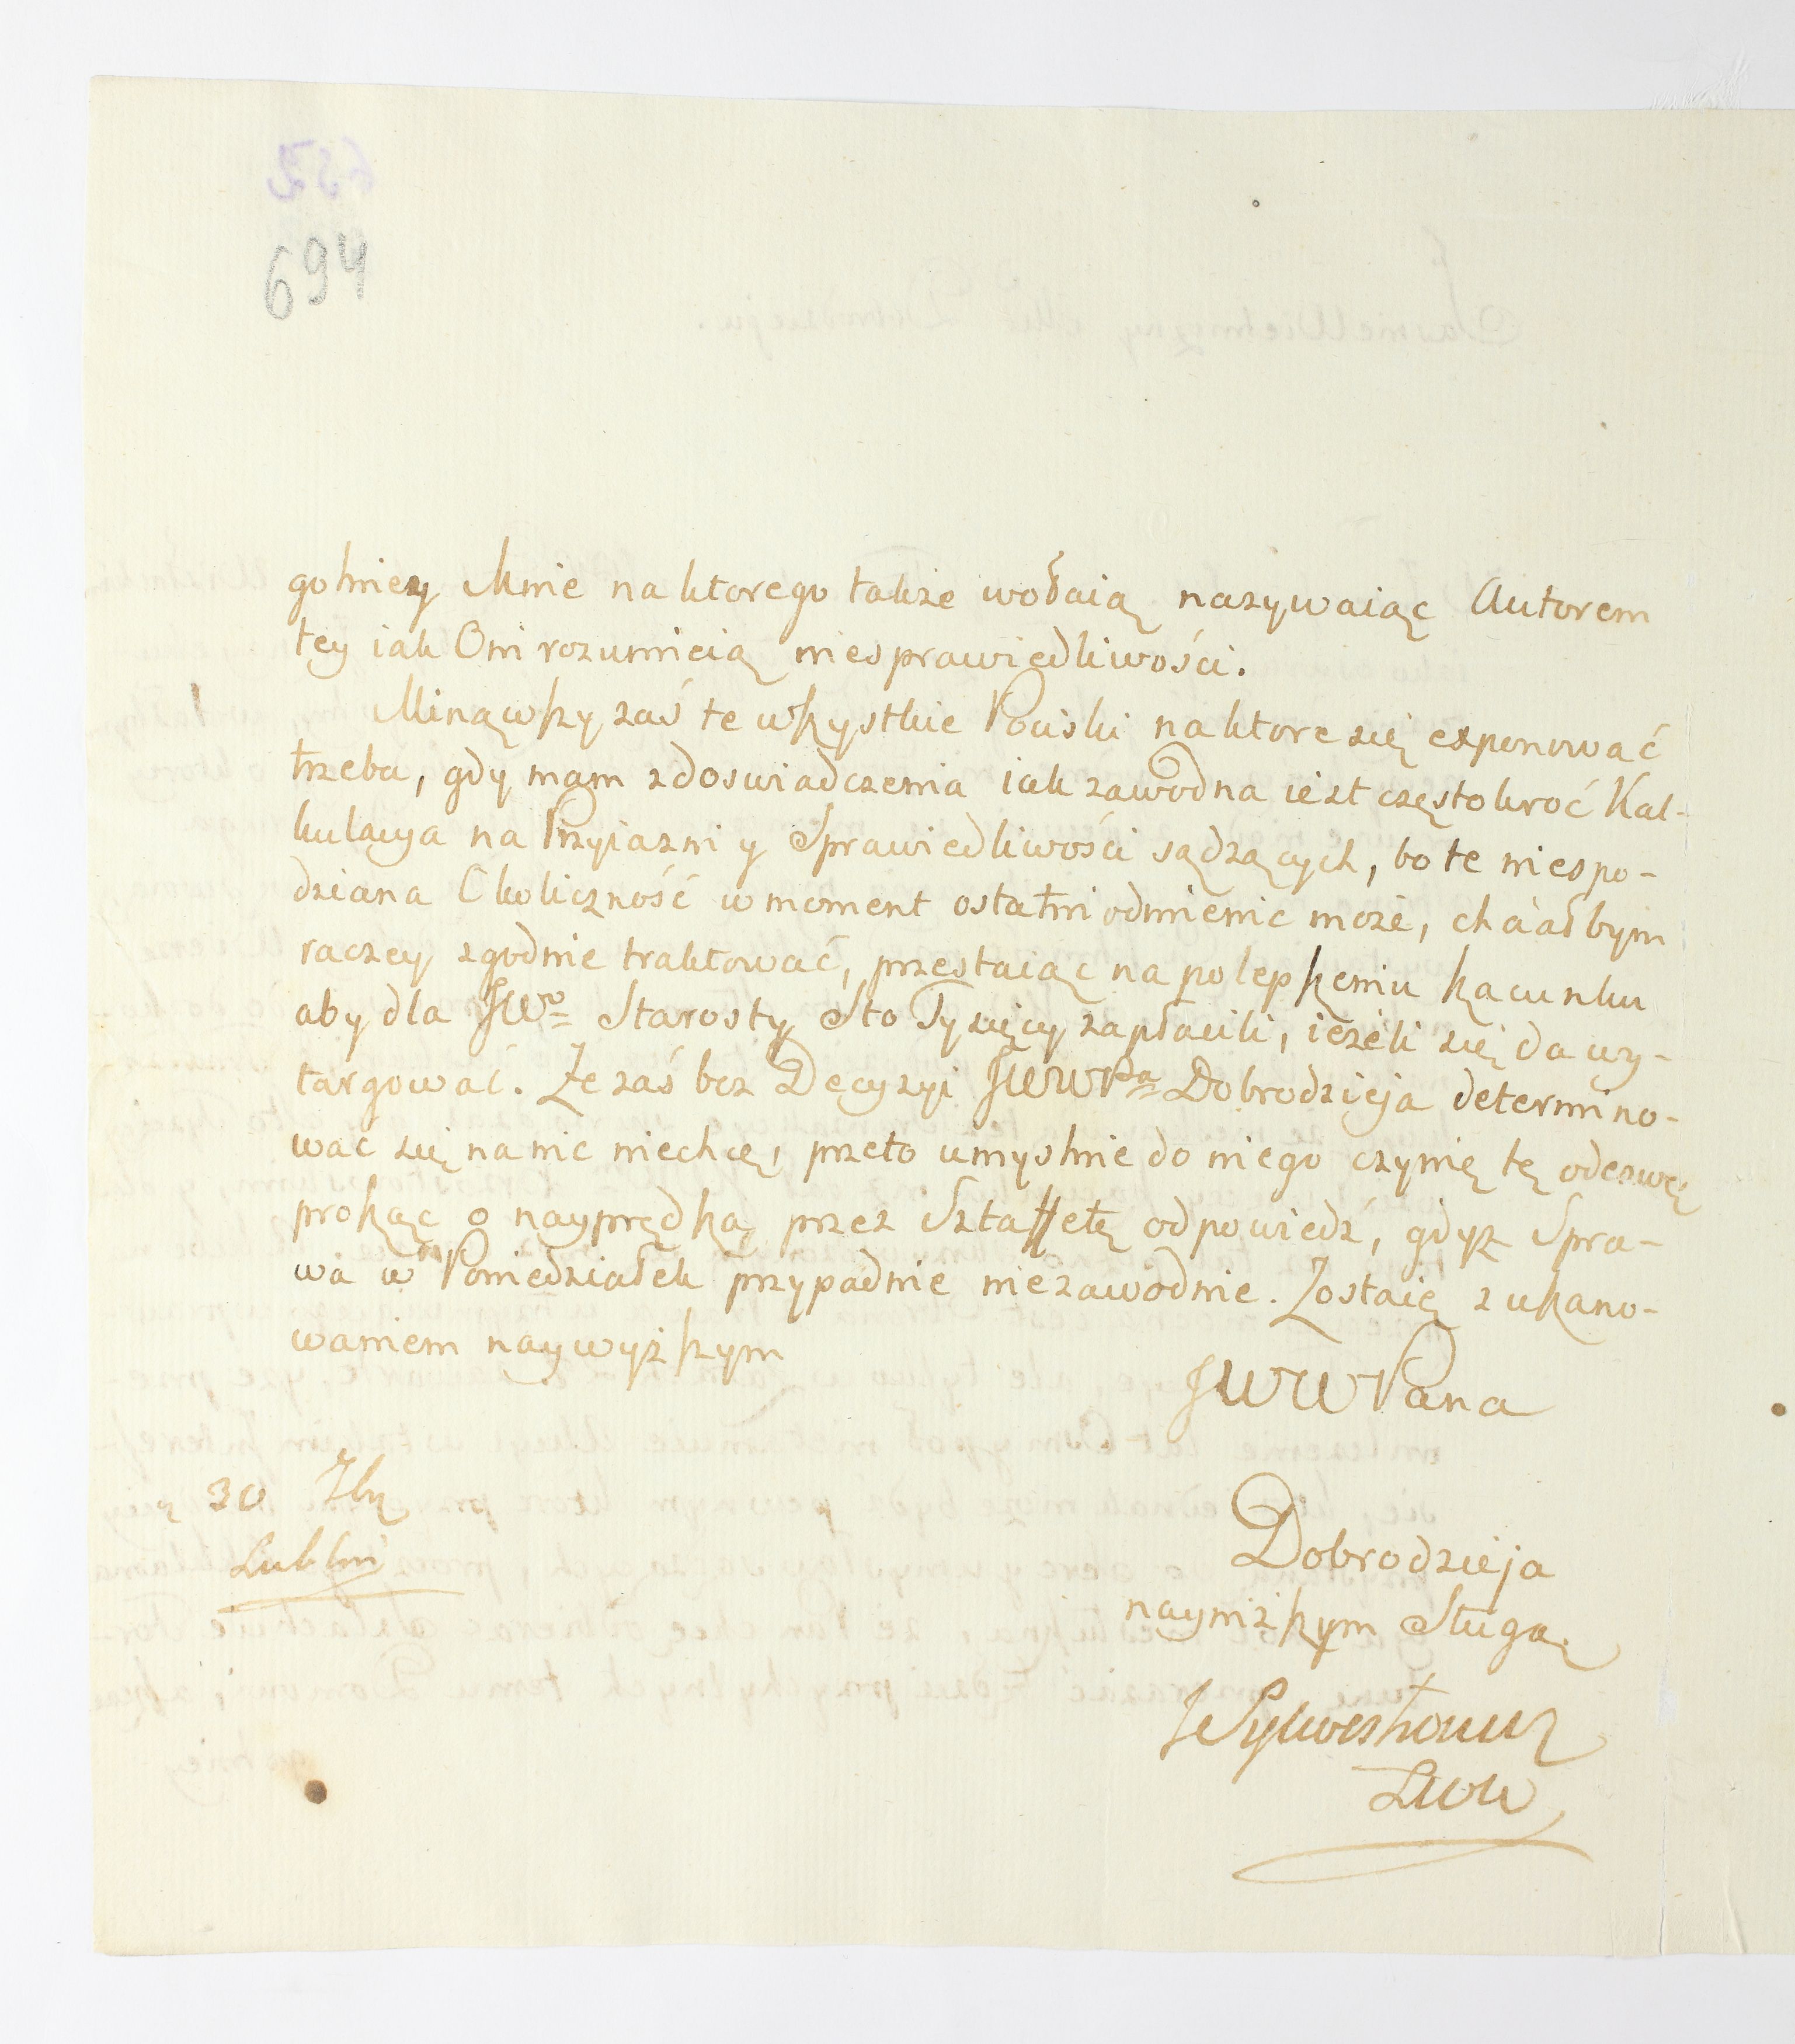 694
golniey Mnie na ktorego także wołaią nazywaiąc Autorem
tey iak Oni rozumieią niesprawiedliwości.
Minąwszy zaś te wszystkie Pociski na ktore się exponować
trzeba, gdy mam z doswiadczenia iak zawodna iest częstokroć Kal-
kulacya na Przyiazni y Sprawiedliwości sądzących, bo te niespo-
dziana Okoliczność w moment ostatni odmienic może, chciałbym
raczey zgodnie traktować, przestaiąc na polepszeniu szacunku
aby dla JWo Starosty Sto Tysięcy zapłacili, ieżeli się da wy-
targować. Ze zaś bez Decyzyi JWWPa Dobrodzieja determino-
wać się na nic niechcę, przeto umyslnie do niego czynię tę odezwę
prosząc o nayprędszą przez Sztaffetę odpowiedź, gdyż Spra-
wa w Poniedziałek przypadnie niezawodnie. Zostaię z uszano-
waniem naywyższym
JWWPana
30 7bŗ
Lublin
Dobrodzieja
nayniższym Sługą